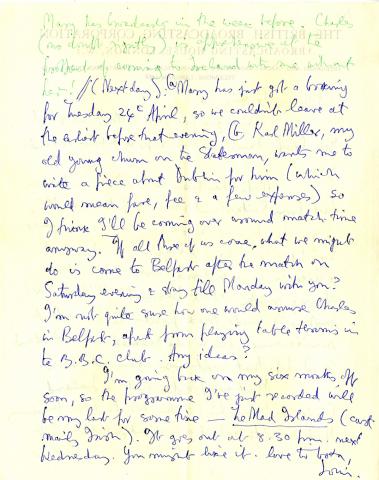 Mary has broadcasts in the week before. Charles
(no doubt
evening to Ireland with me without
her.
// (Next day). (a) Mary has just got a booking
for Tuesday 24th April, so we couldn't leave at
the earliest before that evening. (b) Karl Miller, my
old young chum on the Statesman, wants me to
write a piece about Dublin for him (which
would mean fare, fee & a few expenses) so
I think I'll be coming over around match time
anyway. If all three of us come, what we might
do is come to Belfast after the match on
Saturday evening & stay till Monday with you?
I'm not quite sure how one would amuse Charles
in Belfast, apart from playing table tennis in
the B.B.C. club. Any ideas?
I'm going back on my six months off
soon, so the programme I've just recorded will
be my last for some time — The Mad Islands (cast
mainly Irish). It goes out at 8.30 p.m. next
Wednesday. You might like it. love to both,
Louis.